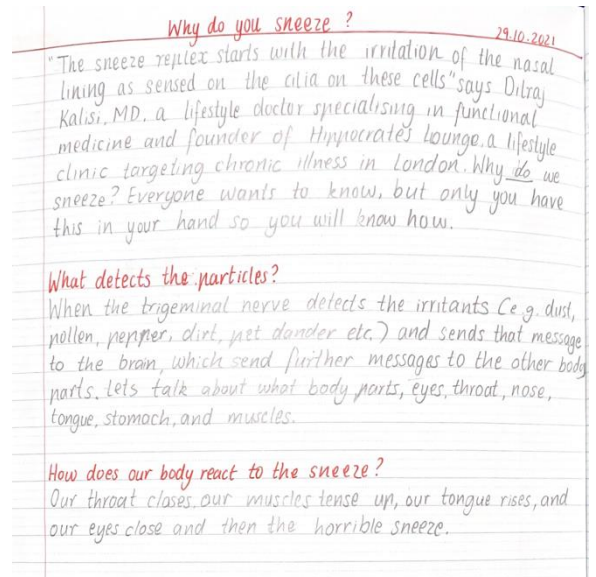 Why do you sneeze ?
29.10.2021
"The sneeze reflex starts with the irritation of the nasal
lining as sensed on the cilia on these cells" says Dilraj
Kalisi, MD, a lifestyle doctor specialising in functional
medicine and founder of Hippocrates lounge, a lifestyle
clinic targeting chronic illness in London. Why do we
sneeze? Everyone wants to know, but only you have
this in your hand so you will know how.
What detects the particles?
When the trigeminal nerve detects the irritants (e.g. dust,
pollen, pepper, dirt, pet dander etc.) and sends that message
to the brain, which send further messages to the other body
parts. Lets talk about what body parts, eyes, throat, nose,
tongue, stomach, and muscles.
How does our body react to the sneeze?
Our throat closes, our muscles tense up, our tongue rises, and
our eyes close and then the horrible sneeze.